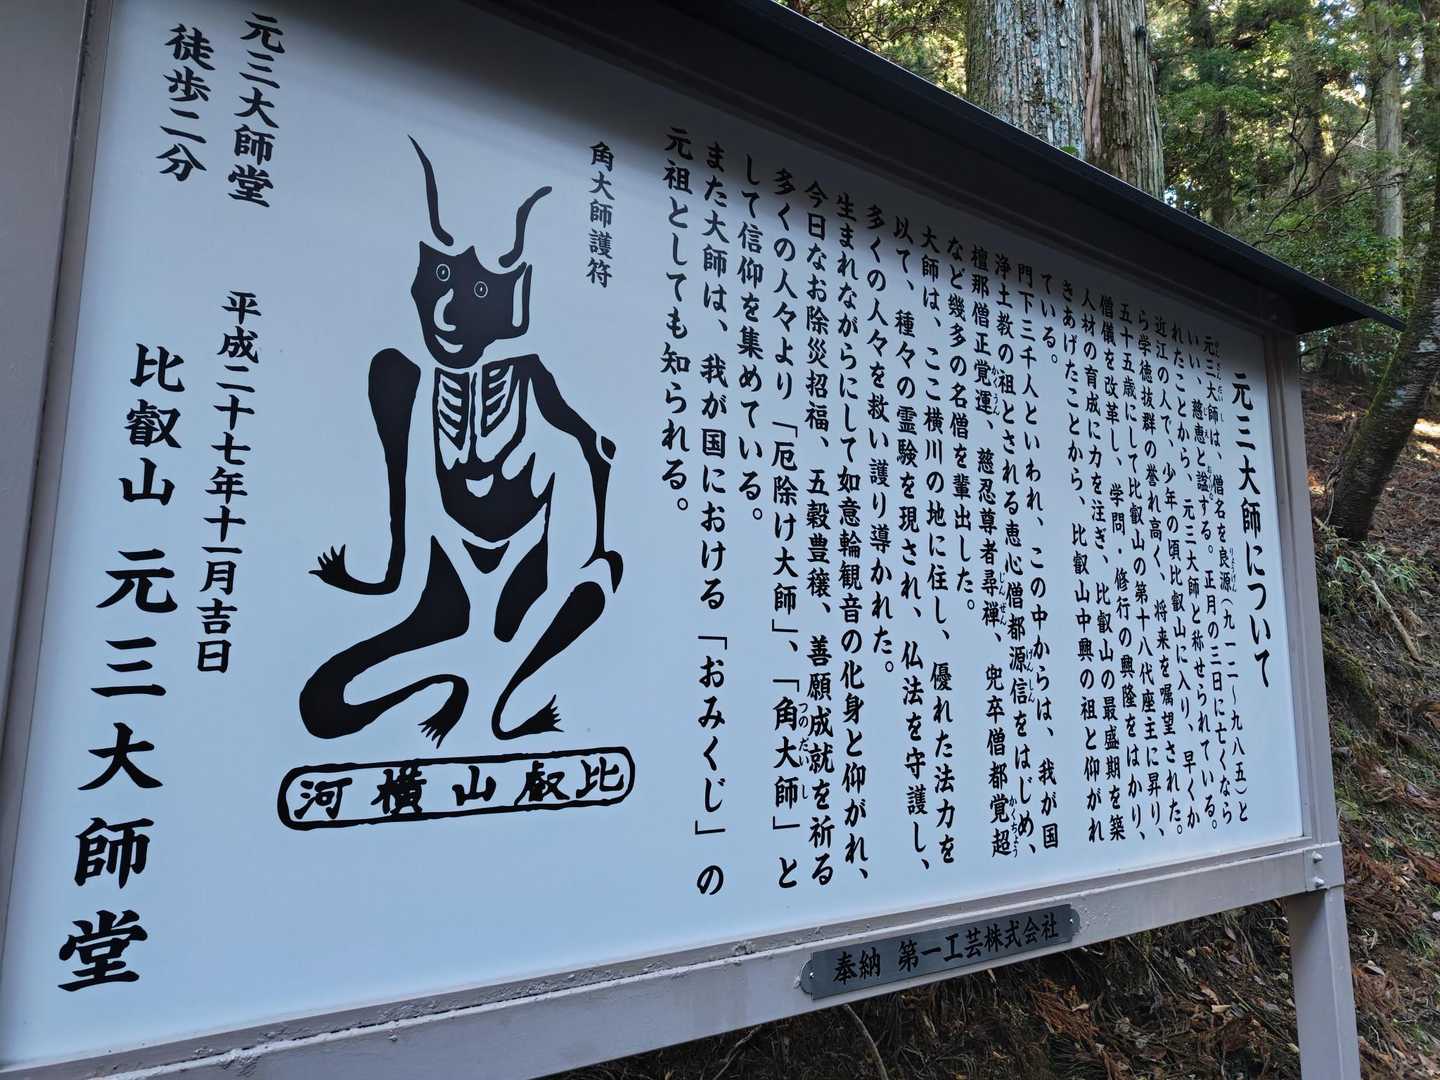 元三大師について
元三大師は、僧名を良源(九一二～九八五)と
がんさんだいし
りょうげん
いい、慈恵と諡する。正月の三日に亡くなら
じえ
おくりな
れたことから、元三大師と称せられている。
近江の人で、少年の頃比叡山に入り、早くか
ら学徳抜群の誉れ高く、将来を嘱望された。
五十五歳にして比叡山の第十八代座主に昇り、
僧儀を改革し、学問・修行の興隆をはかり、
人材の育成に力を注ぎ、比叡山の最盛期を築
きあげたことから、比叡山中興の祖と仰がれ
ている。
門下三千人といわれ、この中からは、我が国
浄土教の祖とされる恵心僧都源信をはじめ、
げんしん
檀那僧正覚運、慈忍尊者尋禅、兜卒僧都覚超
かくうん
じんぜん
かくちょう
など幾多の名僧を輩出した。
大師は、ここ横川の地に住し、優れた法力を
以て、種々の霊験を現され、仏法を守護し、
多くの人々を救い護り導かれた。
生まれながらにして如意輪観音の化身と仰がれ、
今日なお除災招福、五穀豊穣、善願成就を祈る
多くの人々より「厄除け大師」、「角大師」と
つのだいし
して信仰を集めている。
また大師は、我が国における「おみくじ」の
元祖としても知られる。
角大師護符
比叡山横河
元三大師堂
徒歩二分
平成二十七年十一月吉日
比叡山 元三大師堂
奉納 第一工芸株式会社